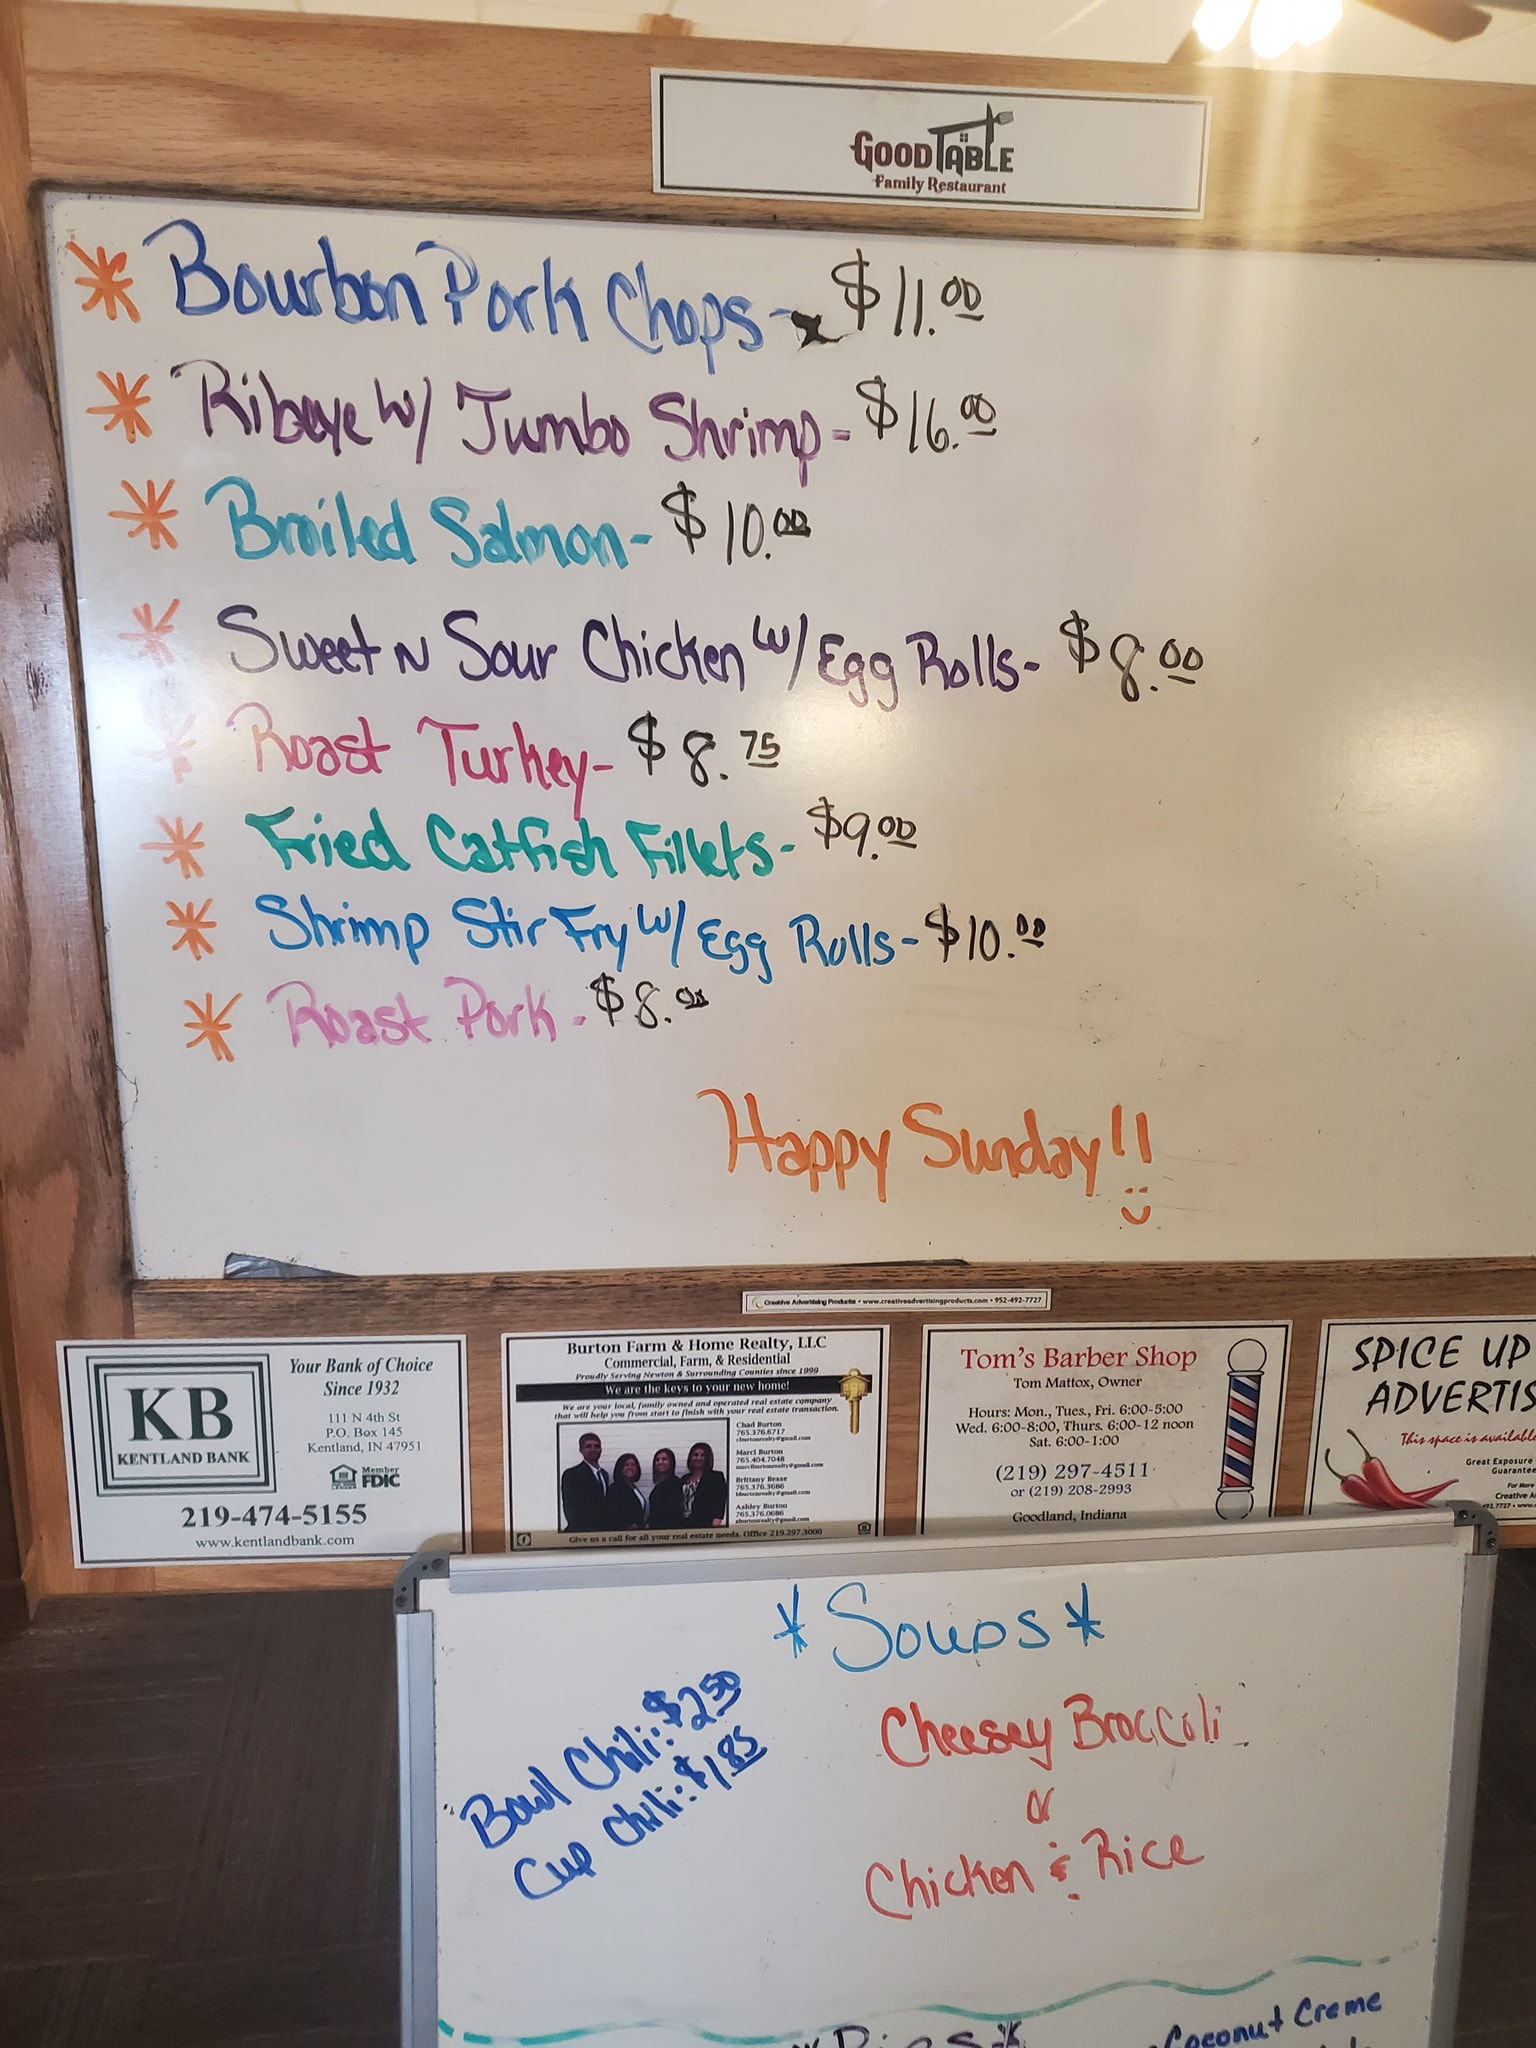 GOOD TABLE
Family Restaurant
Bourbon Pork Chops - $11.00
Ribeye w/ Jumbo Shrimp - $16.00
Broiled Salmon - $10.00
Sweet N Sour Chicken w/ Egg Rolls - $8.00
Roast Turkey - $8.75
Fried Catfish Fillets - $9.00
Shrimp Stir Fry w/ Egg Rolls - $10.00
Roast Pork - $8.00
Happy Sunday!!
Creative Advertising Products • www.creativeadvertisingproducts.com • 952-492-7727
KB
KENTLAND BANK
Your Bank of Choice
Since 1932
111 N 4th St
P.O. Box 145
Kentland, IN 47951
Member
FDIC
219-474-5155
www.kentlandbank.com
Burton Farm & Home Realty, LLC
Commercial, Farm, & Residential
Proudly Serving Newton & Surrounding Counties since 1999
We are the keys to your new home!
We are your local, family owned and operated real estate company
that will help you from start to finish with your real estate transaction.
Chad Burton
765.376.6717
cburtonrealty@gmail.com
Marci Burton
765.404.7048
marciburtonrealty@gmail.com
Brittany Besse
765.376.3686
bburtonrealty@gmail.com
Ashley Burton
765.376.0686
aburtonrealty@gmail.com
Give us a call for all your real estate needs. Office 219.297.3000
Tom's Barber Shop
Tom Mattox, Owner
Hours: Mon., Tues., Fri. 6:00-5:00
Wed. 6:00-8:00, Thurs. 6:00-12 noon
Sat. 6:00-1:00
(219) 297-4511
or (219) 208-2993
Goodland, Indiana
SPICE UP
ADVERTIS
This space is available
Great Exposure
Guarantee
For More
Creative A
92.7727 •
*Soups*
Bowl Chili: $2.50
Cup Chili: $1.85
Cheesey Broccoli
or
Chicken & Rice
Pies*
Coconut Creme